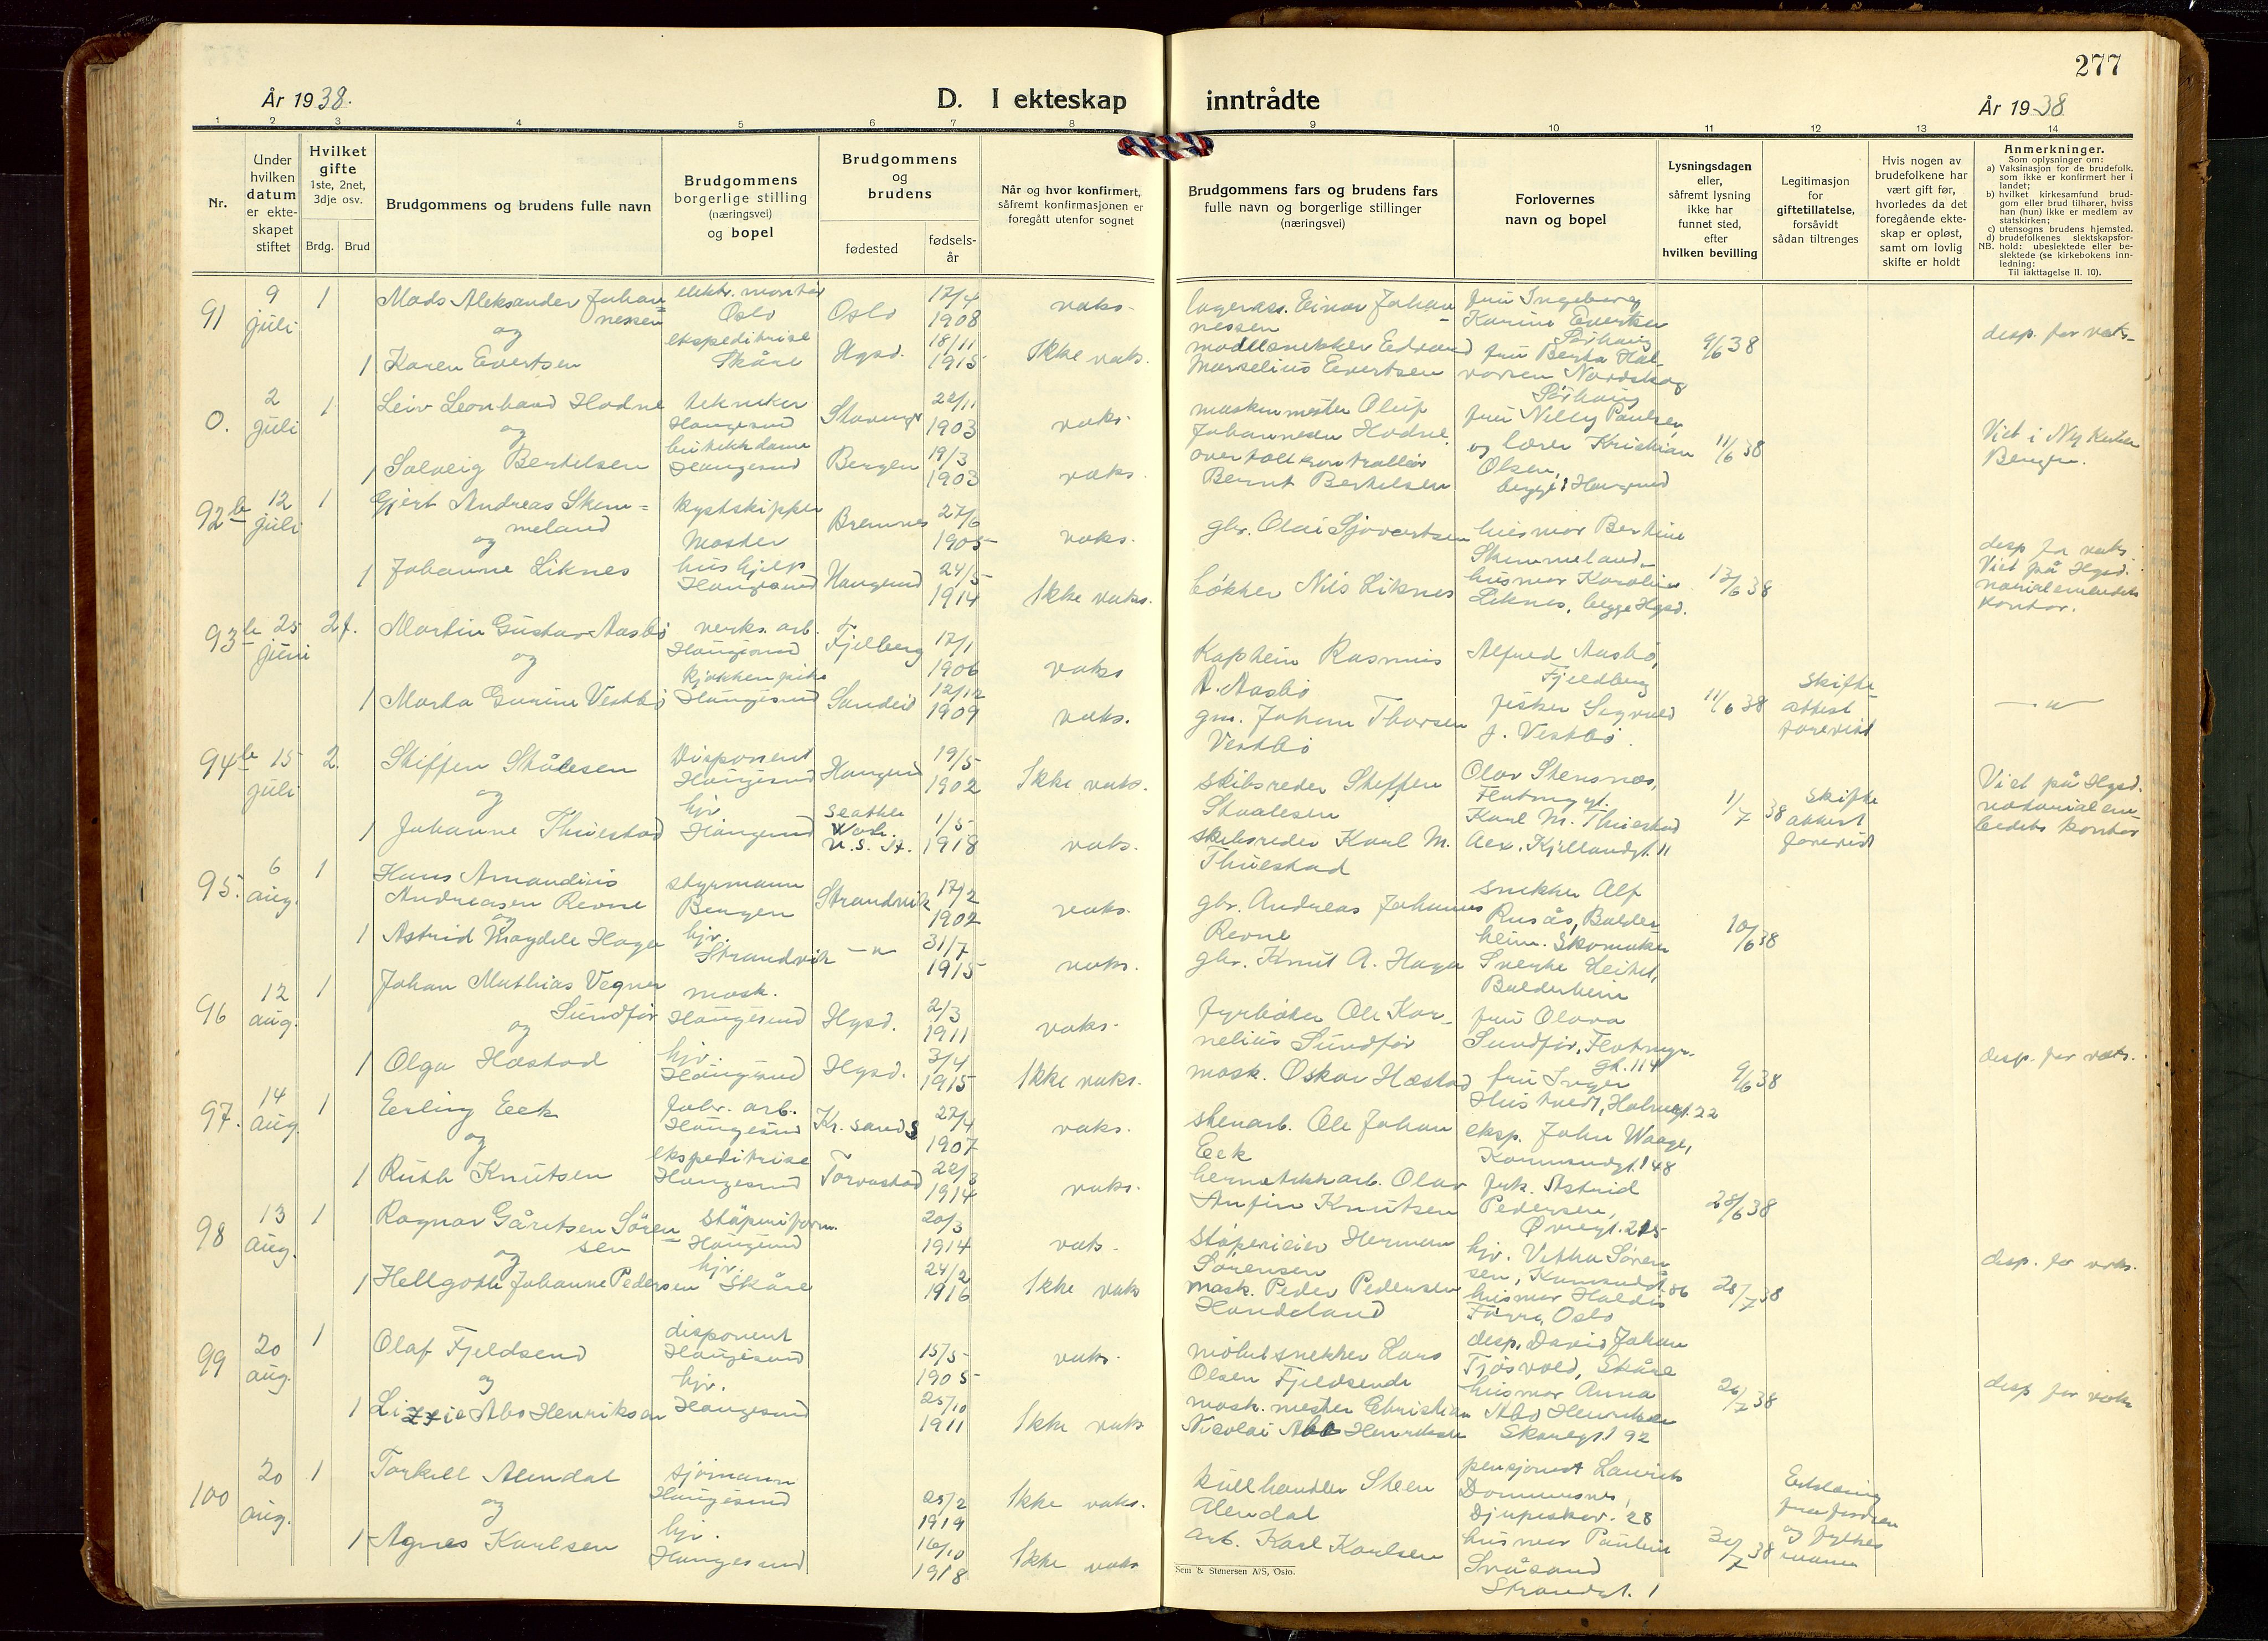 277
År 1938.
D. I ekteskap inntrådte
År 1938
1 2 3 4 5 6 7 8 9 10 11 12 13 14
Nr.
Under hvilken datum er ekteskapet stiftet
Hvilket gifte
1ste, 2net, 3dje osv.
Brdg. Brud
Brudgommens og brudens fulle navn
Brudgommens borgerlige stilling (næringsvei) og bopel
Brudgommens og brudens
fødested
fødsels-år
Når og hvor konfirmert, såfremt konfirmasjonen er foregått utenfor sognet
Brudgommens fars og brudens fars fulle navn og borgerlige stillinger (næringsvei)
Forlovernes navn og bopel
Lysningsdagen eller, såfremt lysning ikke har funnet sted, efter hvilken bevilling
Legitimasjon for giftetillatelse, forsåvidt sådan tiltrenges
Hvis nogen av brudefolkene har vært gift før, hvorledes da det foregående ekteskap er opløst, samt om lovlig skifte er holdt
Anmerkninger.
Som oplysninger om:
a) Vaksinasjon for de brudefolk, som ikke er konfirmert her i landet;
b) hvilket kirkesamfund brudgom eller brud tilhører, hviss han (hun) ikke er medlem av statskirken;
c) utensogns brudens hjemsted.
d) brudefolkenes slektskapsforhold: ubeslektede eller beslektede (se kirkebokens innledning:
NB.
Til iakttagelse II. 10).
91 9 juli 1 Mads Aleksander Johannessen elektr. montør Oslo Oslo 17/4 1908 vaks. lagerass. Einar Johannessen fru Ingeborg Karine Evertsen Sørhaug
og
1 Karen Evertsen ekspeditrise Skåre Hgsd. 18/11 1915 Ikke vaks. modellsnekker Edvard Marselius Evertsen fru Berta Halvorsen Nordskog Sørhaug 9/6 38 desp. for vaks.
0. 2 juli 1 Leiv Leonhard Hodne tekniker Haugesund Stavanger 22/11 1903 vaks. maskinmester Oluf Johannesen Hodne. fru Nelly Paulsen
og
1 Solveig Bertelsen butikkdame Haugesund Bergen 19/3 1903 vaks. overtollkontrollør Bernt Bertelsen og lærer Kristian Olsen, begge i Haugesund 11/6 38 Viet i Ny Kirken Bergen.
92 b 12 juli 1 Gjert Andreas Skimmeland kystskipper Moster Bremnes 27/6 1905 vaks. gbr. Olai Sjovertsen husmor Bertine Skimmeland.
og
1 Johanne Liknes hushjelp Haugesund Haugesund 24/5 1914 Ikke vaks. bøkker Nils Liknes husmor Karoline Liknes, begge Hgsd. 13/6 38 desp for vaks. Viet på Hgsd. notarialembedets kontor.
93 b 25 juni 2 f. Martin Gustav Aasbø verks. arb. Haugesund Fjelberg 17/1 1906 vaks kaptein Rasmus A. Aasbø Alfred Aasbø, Fjeldberg
og
1 Marta Gurine Vestbø kjøkkenpike Haugesund Sandeid 12/12 1909 vaks. gm. Johan Thorsen Vestbø fisker Sigvald J. Vestbø 11/6 38 Skifteattest forevist — " —
94 b 15 juli 2. Stiffen Stålesen Disponent Haugesund Haugesund 19/5 1902 Ikke vaks. skibsreder Steffen Staalesen Olav Stensnæs, Flotmyrgt.
og
1 Johanne Thuestad hjv. Haugesund Seattle Wash. U.S.A. 1/5 1918 vaks. skibsreder Karl M. Thuestad Karl M. Thuestad Alex. Kjellandgt. 11 1/7 38 Skifte attest forevist Viet på Hgsd. notarialembedets kontor
95. 6 aug. 1 Hans Amandius Andreasen Revne styrmann Bergen Strandvik 17/2 1902 vaks. gbr. Andreas Johannes Revne snekker Alf Rusås, Balderheim.
og
1 Astrid Magdele Haga hjv. Strandvik — " 31/7 1915 vaks. gbr. Knut A. Haga Skomaker Sverke Leitet, Balderheim 10/6 38
96 12 aug. 1 Johan Mathias Vegner Sundfør mask. Haugesund Hgsd. 2/3 1911 vaks. fyrbøter Ole Kornelius Sundfør fru Olava Sundfør, Flotmyrgt. 114
og
1 Olga Hæstad hjv. Haugesund Hgsd. 3/4 1915 Ikke vaks. mask. Oskar Hæstad fru Inger Hustvedt, Holmegt. 22 9/6 38 desp. for vaks.
97. 14 aug. 1 Erling Eek fabr. arb. Haugesund Kr. sand S 27/4 1907 vaks. stenarb. Ole Johan Eek eksp. John Waage, Karmsundgt. 148
og
1 Ruth Knutsen ekspeditrise Haugesund Torvastad 22/3 1914 vaks. hermetikkarb. Olav Anfin Knutsen frk. Astrid Pedersen, Øvregt. 215 28/6 38
98 13 aug. 1 Ragnar Gåretsen Sörensen støperiform. Haugesund 20/3 1914 vaks. støperieier Herman Sørensen hjv. Vetha Sørensen, Karmsundgt. 86
og
1 Hellgoth Johanne Pedersen hjv. Skåre 24/2 1916 Ikke vaks mask. Peder Pedersen Handeland husmor Haldis Færre, Oslo 28/7 38 desp. for vaks.
99 20 aug. 1 Olaf Fjeldsend disponent Haugesund 15/5 1905 vaks. møbelsnekker Lars Olsen Fjeldsende desp. David Johan Tjøsvold, Skåre
og
1 Lizzie Abo Henriksen hjv. Haugesund 25/10 1911 Ikke vaks mask. mester Christian Nicolai Abo Henriksen husmor Anna Abo Henriksen Skaregt. 92 26/7 38 desp for vaks
100 20 aug. 1 Torkell Alendal sjömann Haugesund 25/2 1919 Ikke vaks. kullhandler Steen Alendal pensjonist Laurits Dommersnes, Djupeskar. 28
og
1 Agnes Karlsen hjv. Haugesund 16/10 1918 Ikke vaks arb. Karl Karlsen husmor Pauline Småsund Strandgt. 1 30/7 38 fra og fylkesmann
Sem & Stenersen A/S, Oslo.